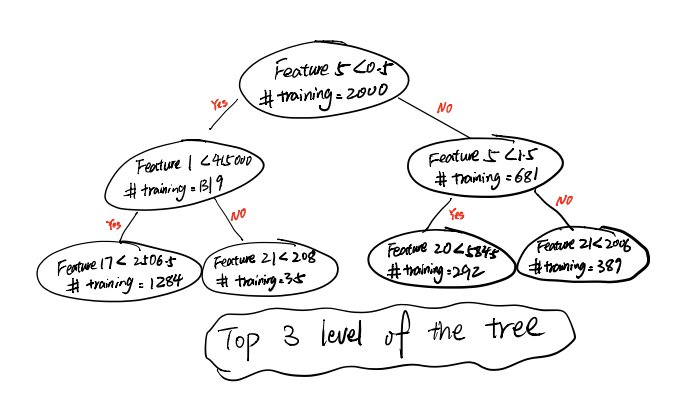 Feature 5 <0.5
# training = 2000
Yes
NO
Feature 1 < 415000
# training = 1319
Feature 5 <1.5
# training = 681
Yes
NO
Yes
NO
Feature 17 < 2506.5
# training = 1284
Feature 21 < 208
# training = 35
Feature 20 < 5845
# training = 292
Feature 21 < 2006
# training = 389
Top 3 level of the tree